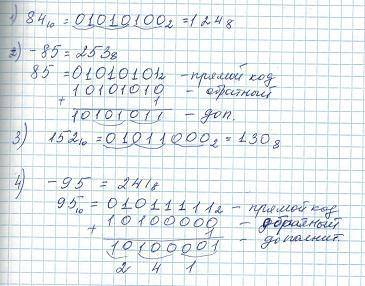 1) 84₁₀ = 01010100₂ = 124₈
2) -85 = 253₈
85 = 01010101₂ - прямой код
10101010 - обратный
+ 1
10101011 - доп.
3) 152₁₀ = 01011000₂ = 130₈
4) -95 = 241₈
95₁₀ = 01011111₂ - прямой код
+ 10100000 - обратный
1
10100001 - дополнит.
2 4 1